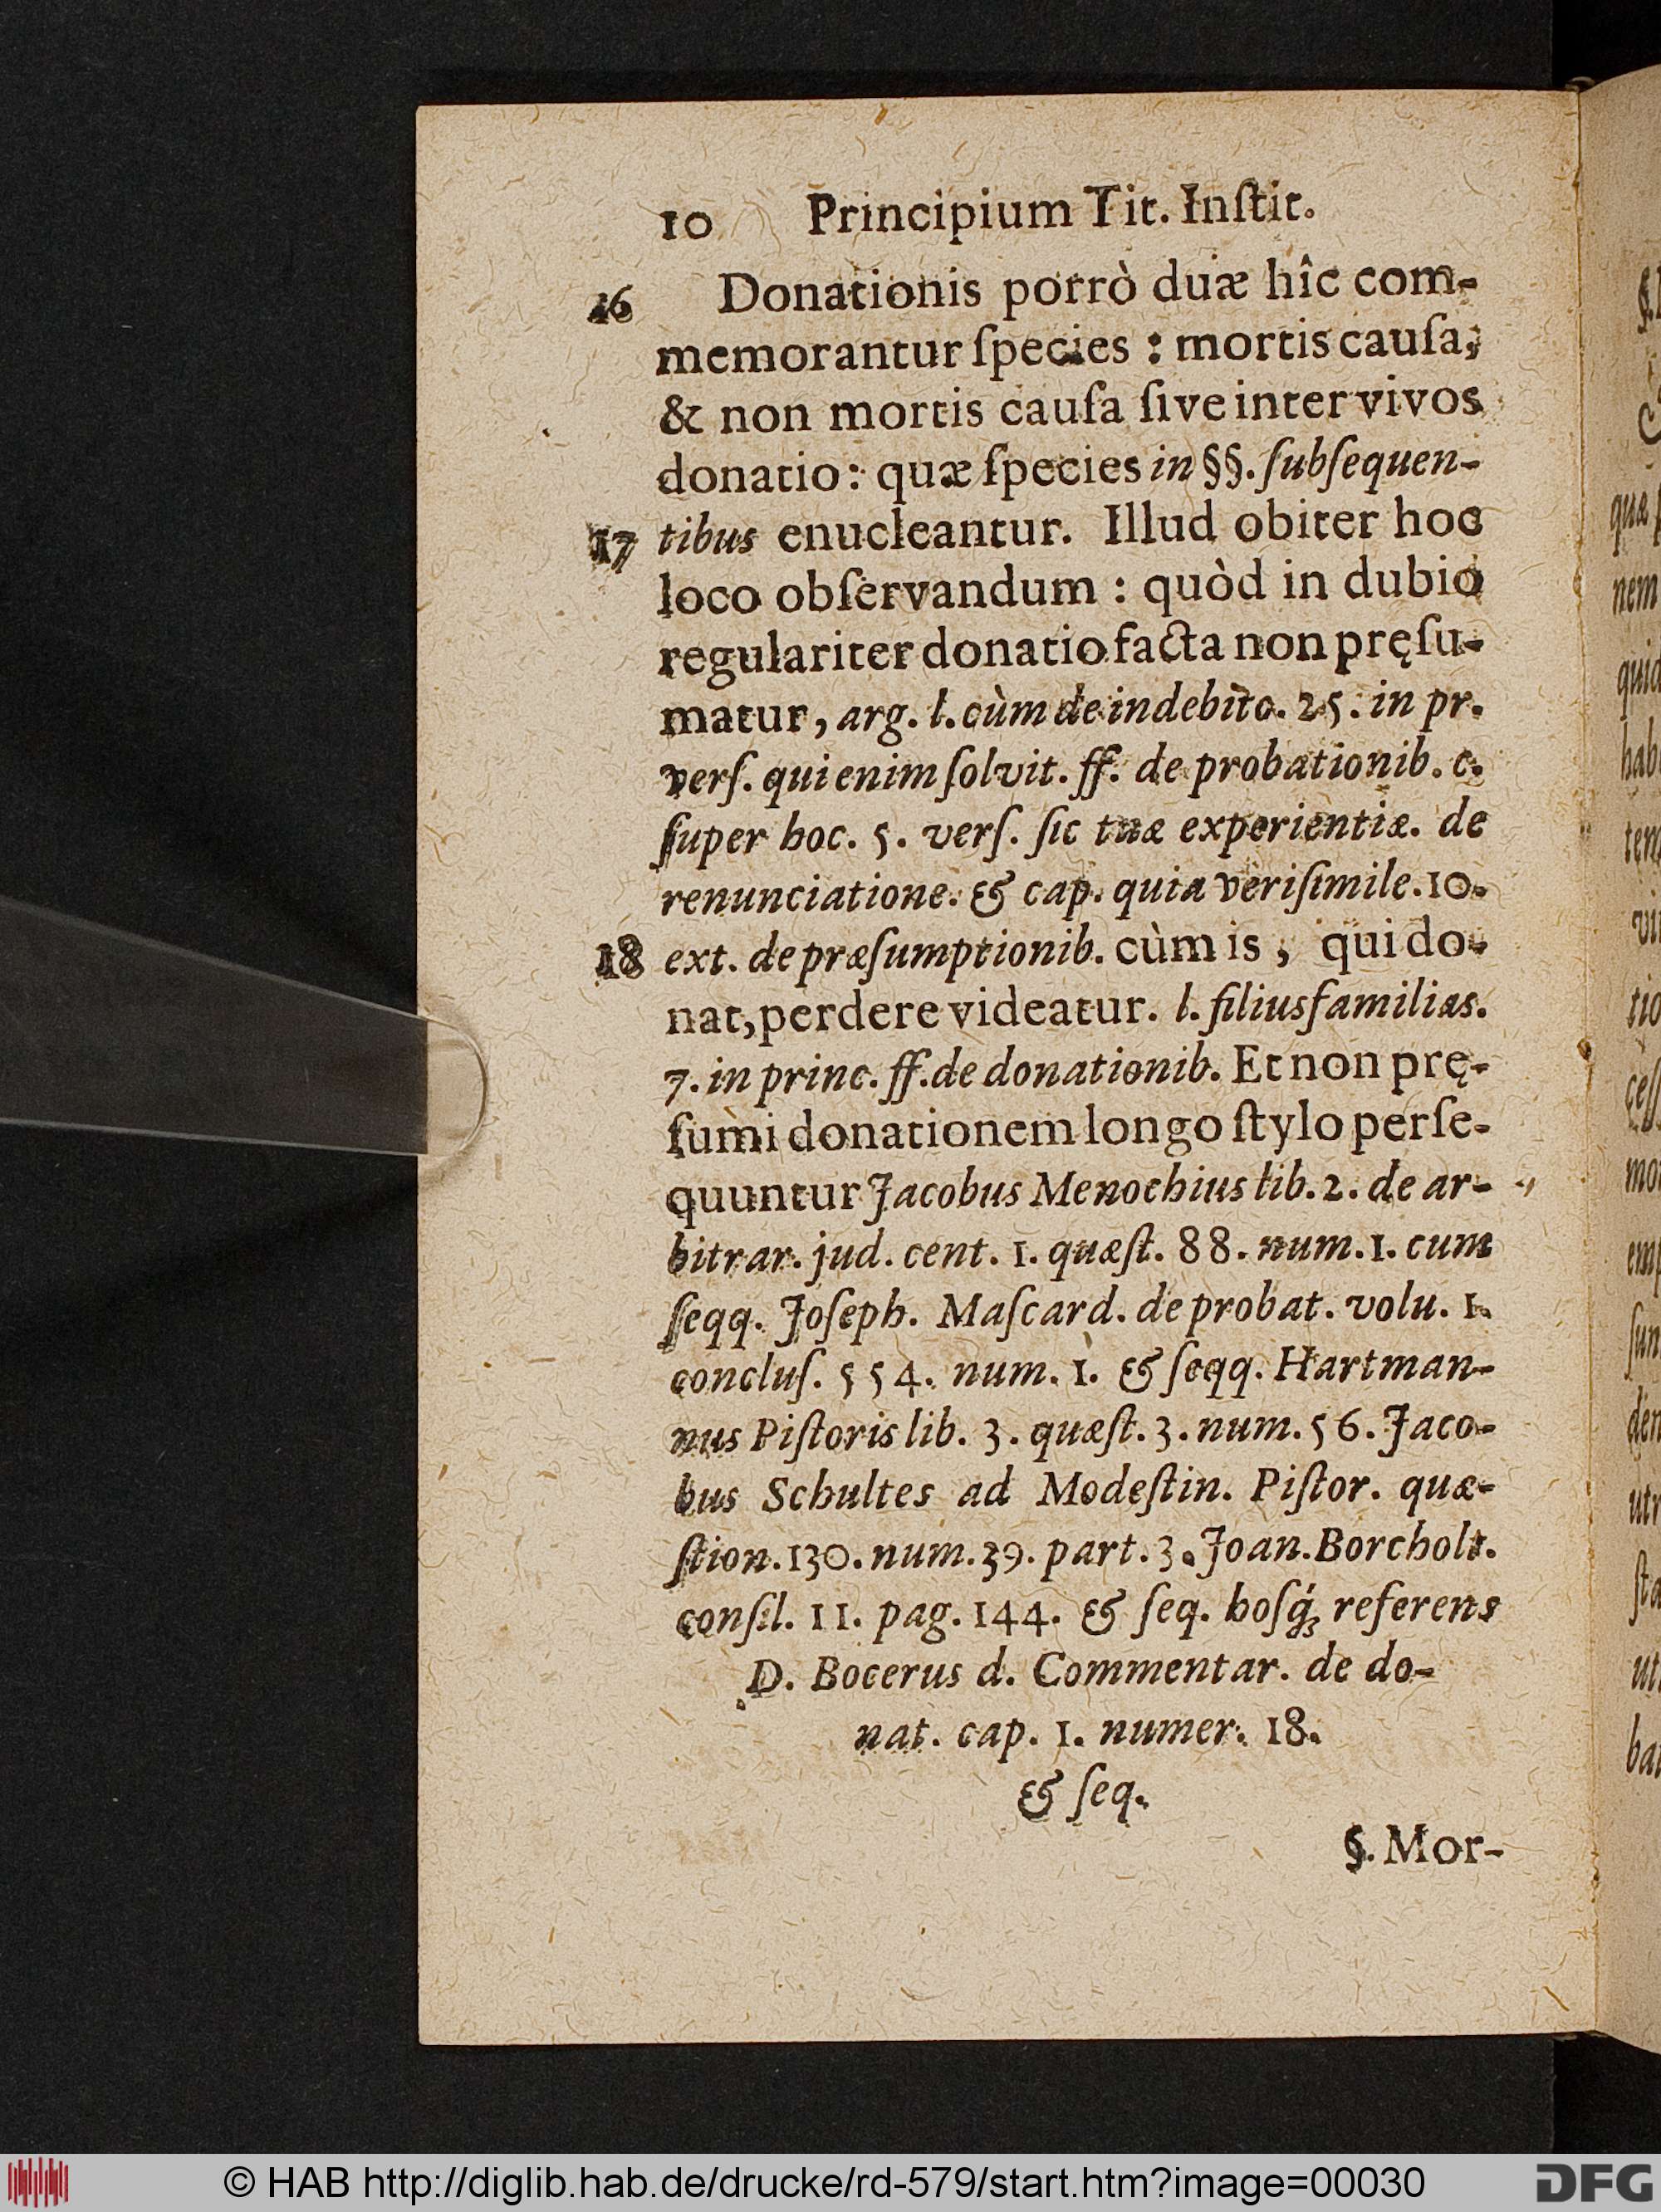 10 Principium Tit. Inſtit.
16 Donationis porrò duæ hîc com-
memorantur ſpecies : mortis cauſa,
& non mortis cauſa ſive inter vivos
donatio: quæ ſpecies in §§. ſubſequen-
17 tibus enucleantur. Illud obiter hoc
loco obſervandum : quòd in dubio
regulariter donatio facta non pręſu-
matur, arg. l. cùm de indebito. 25. in pr.
verſ. qui enim ſolvit. ff. de probationib. c.
ſuper hoc. 5. verſ. ſic tuæ experientiæ. de
renunciatione. & cap. quia veriſimile. 10.
18 ext. de præſumptionib. cùm is, qui do-
nat, perdere videatur. l. filiusfamilias.
7. in princ. ff. de donationib. Et non prę-
ſumi donationem longo ſtylo perſe-
quuntur Jacobus Menochius lib. 2. de ar-
bitrar. jud. cent. 1. quæſt. 88. num. 1. cum
ſeqq. Joſeph. Maſcard. de probat. volu. 1.
concluſ. 554. num. 1. & ſeqq. Hartman-
nus Piſtoris lib. 3. quæſt. 3. num. 56. Jaco-
bus Schultes ad Modeſtin. Piſtor. quæ-
ſtion. 130. num. 39. part. 3. Joan. Borcholt.
conſil. 11. pag. 144. & ſeq. hoſq́; referens
D. Bocerus d. Commentar. de do-
nat. cap. 1. numer. 18.
& ſeq.
§. Mor-
quæ
nem
© HAB http://diglib.hab.de/drucke/rd-579/start.htm?image=00030
DFG